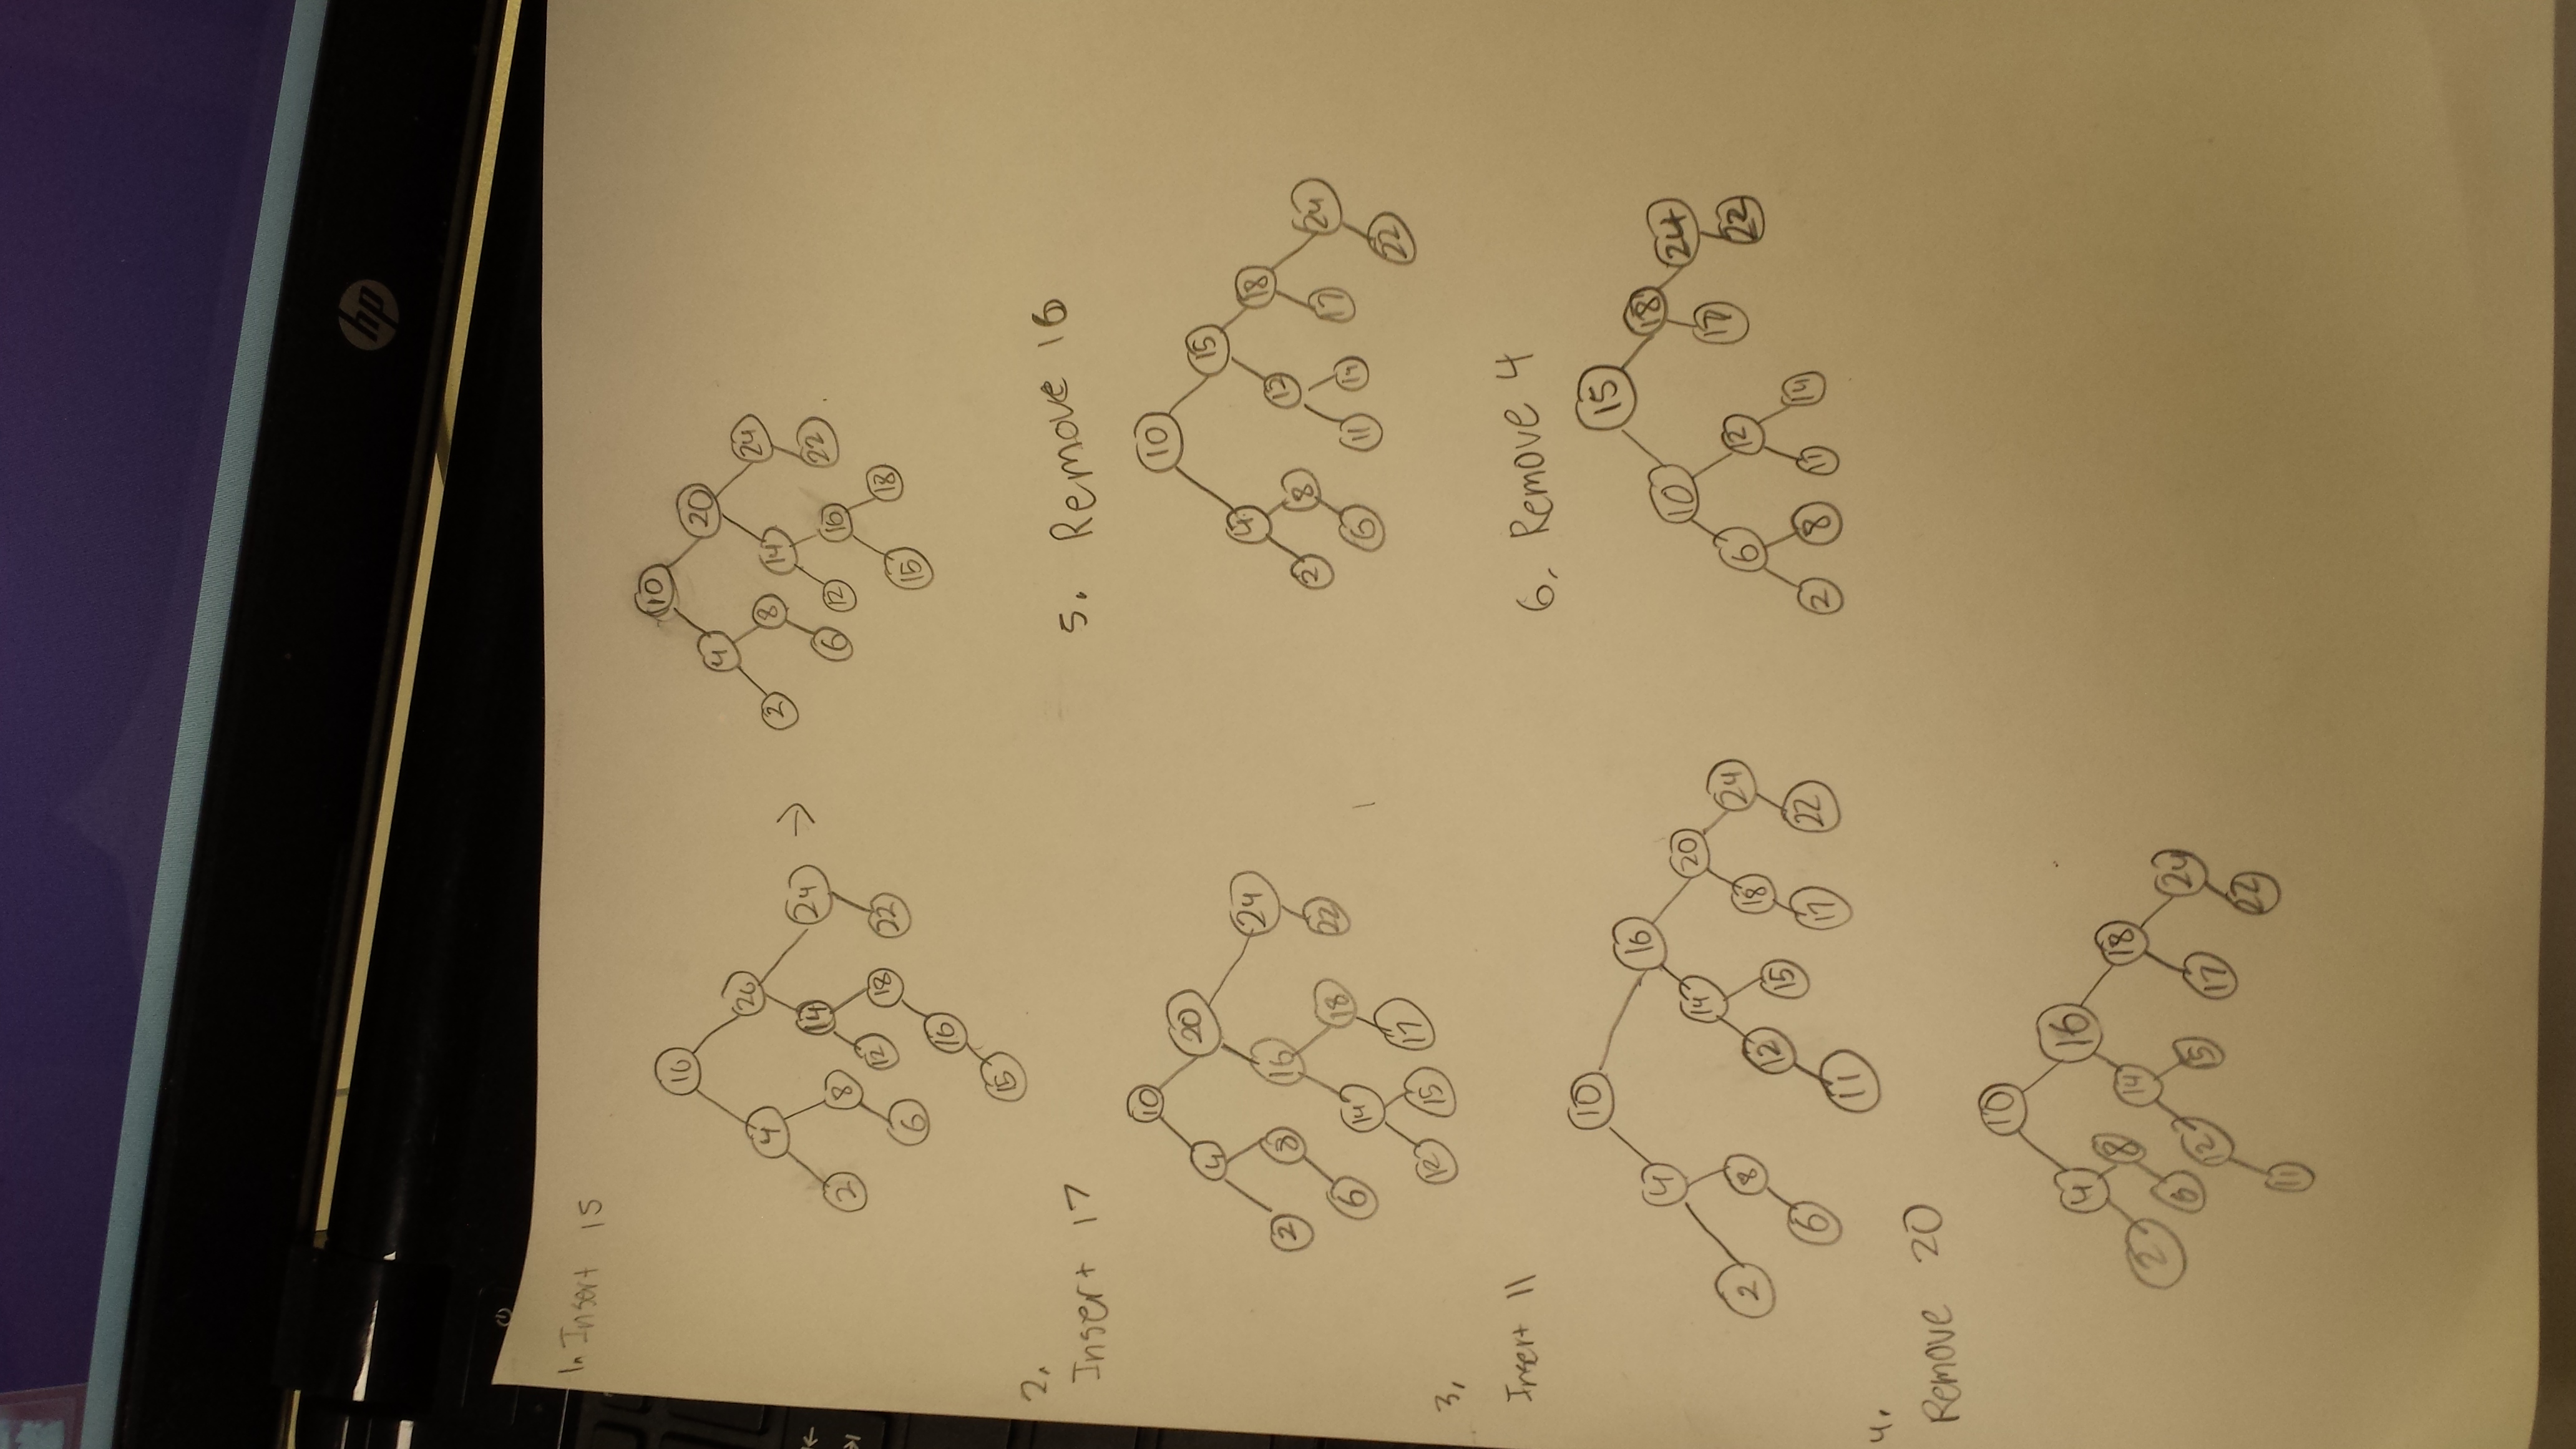 hp
1. Insert 15
10
4 20
2 8 14 24
6 12 18 22
16
15
→
10
4 20
2 8 14 24
6 12 16 22
15 18
2.
Insert 17
10
4 20
2 8 16 24
6 14 18 22
12 15 17
3.
Insert 11
10
4 16
2 8 14 20
6 12 15 18 24
11 17 22
4.
Remove 20
10
4 16
2 8 14 18
6 12 15 17 24
11 22
5. Remove 16
10
4 15
2 8 12 18
6 11 14 17 24
22
6. Remove 4
15
10 18
6 12 17 24
2 8 11 14 22